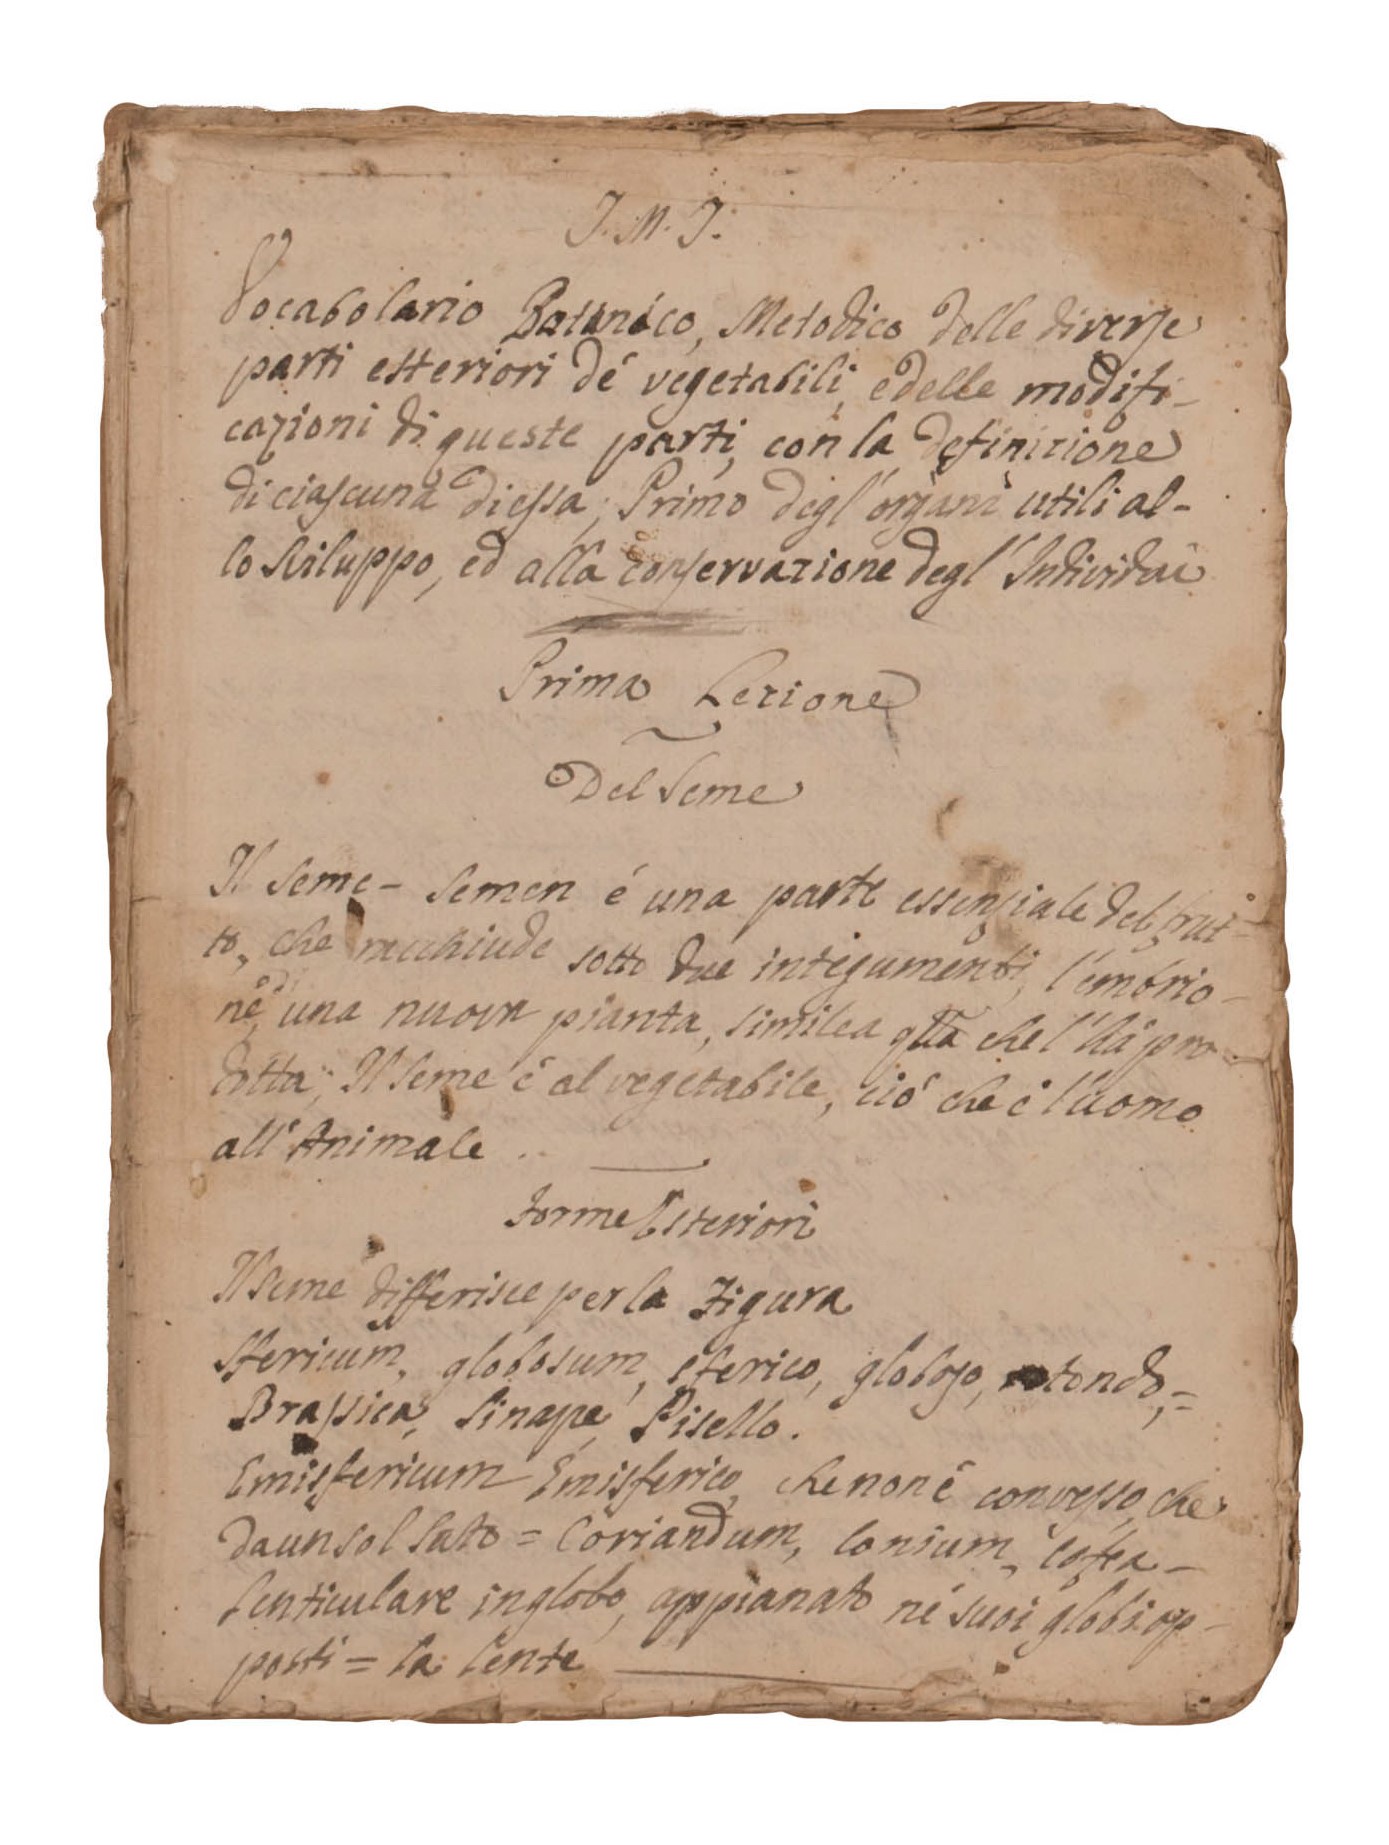 J. M. J.
Vocabolario Bottanico, Metodico delle diverse
parti esteriori dé vegetabili, e delle modifi-
cazioni di queste parti, con la definizione
di ciascuna di essa; Primo degl' organi utili al-
lo sviluppo, ed alla conservazione degl' Individui
Prima Lezione
Del Seme
Il Seme - Semen é una parte essenziale del frut-
to, che racchiude sotto due integumenti, l'embrio-
ne di una nuova pianta, simile a qlla che l'há pro-
dotta; Il Seme é al vegetabile, ció che é l'uomo
all' Animale ..
Forme Esteriori
Il Seme differisce per la Figura
Sfericum, globosum, sferico, globoso, rotondo, =
Brassica, Sinape, Pisello.
Emisfericum Emisferico, che non é convesso, che
da un sol lato = Coriandum, Conium, Coffea -
Lenticulare in globo, appianato né suoi globi op-
posti = la lente